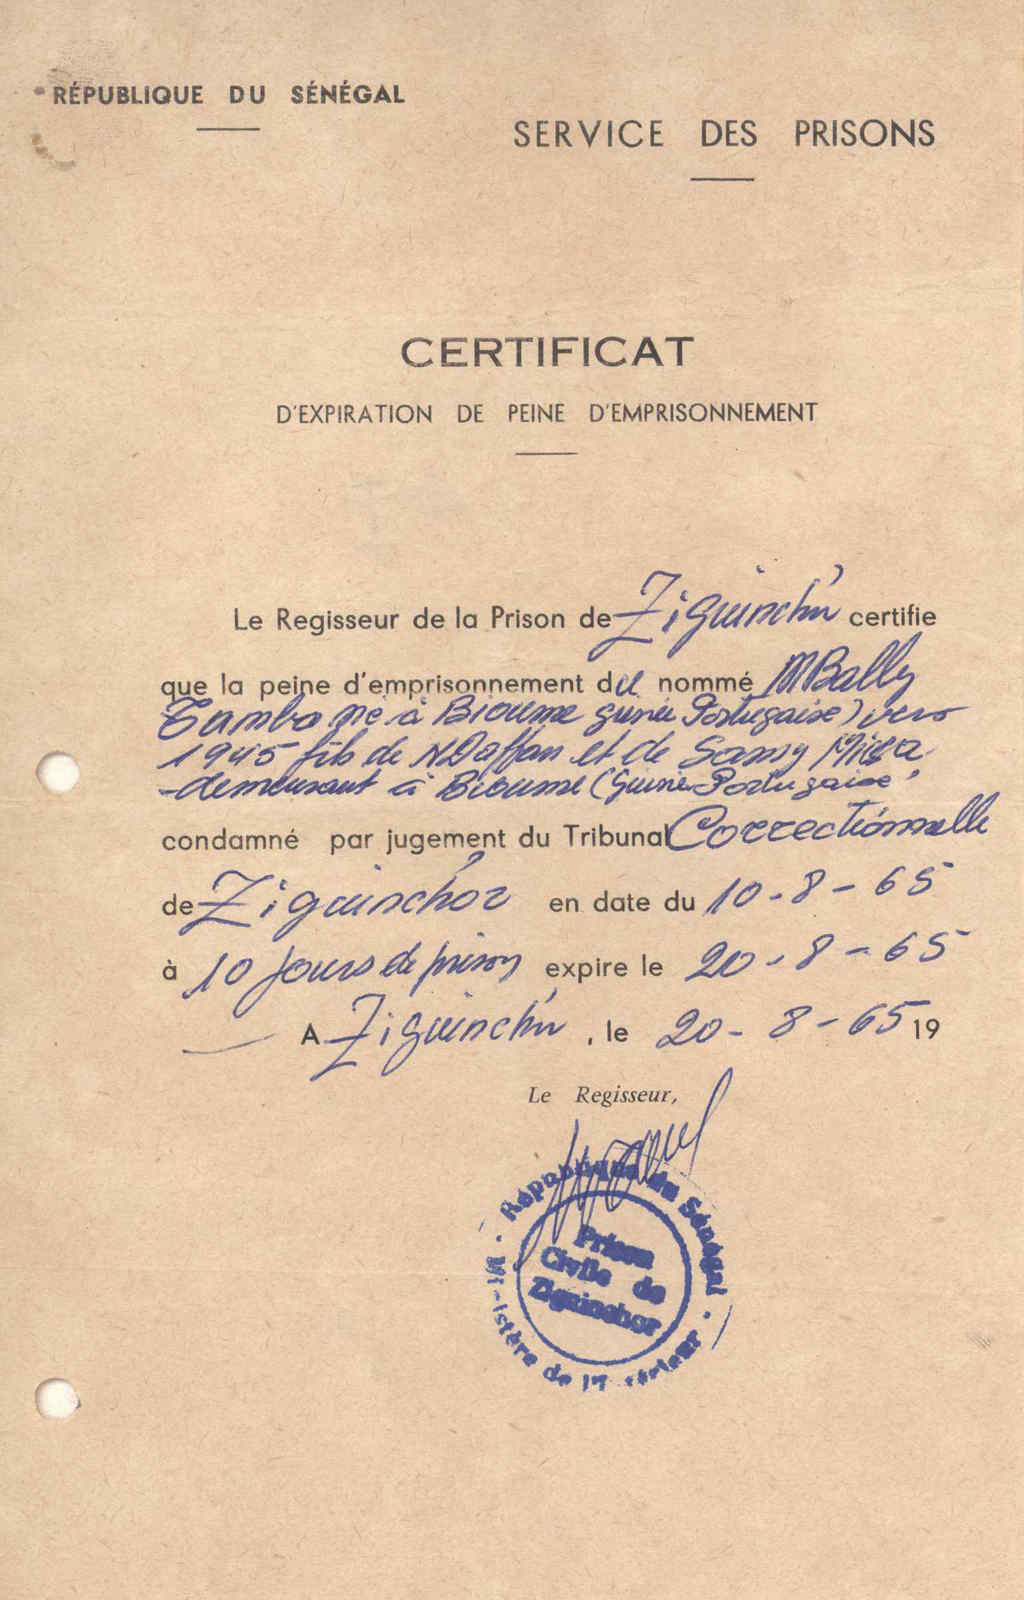 RÉPUBLIQUE DU SÉNÉGAL
SERVICE DES PRISONS
CERTIFICAT
D'EXPIRATION DE PEINE D'EMPRISONNEMENT
Le Regisseur de la Prison de Ziguinchor certifie
que la peine d'emprisonnement du nommé MBally
né à Bioume guinée Portugaise) vers
1945 fils de NDaffan et de Samy
demeurant à Bioume (Guinée Portugaise
condamné par jugement du Tribunal Correctionnelle
de Ziguinchor en date du 10-8-65
à 10 jours de prison expire le 20-8-65
A Ziguinchor, le 20-8-65 19
Le Regisseur,
République du Sénégal
Prison
Civile de
Ziguinchor
Ministère de l'Intérieur